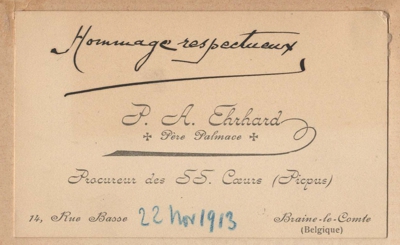 Hommage respectueux
P. A. Ehrhard
✠ Père Palmace ✠
Procureur des SS. Cœurs (Picpus)
14, Rue Basse 22 Nov 1913 Braine-le-Comte
(Belgique)